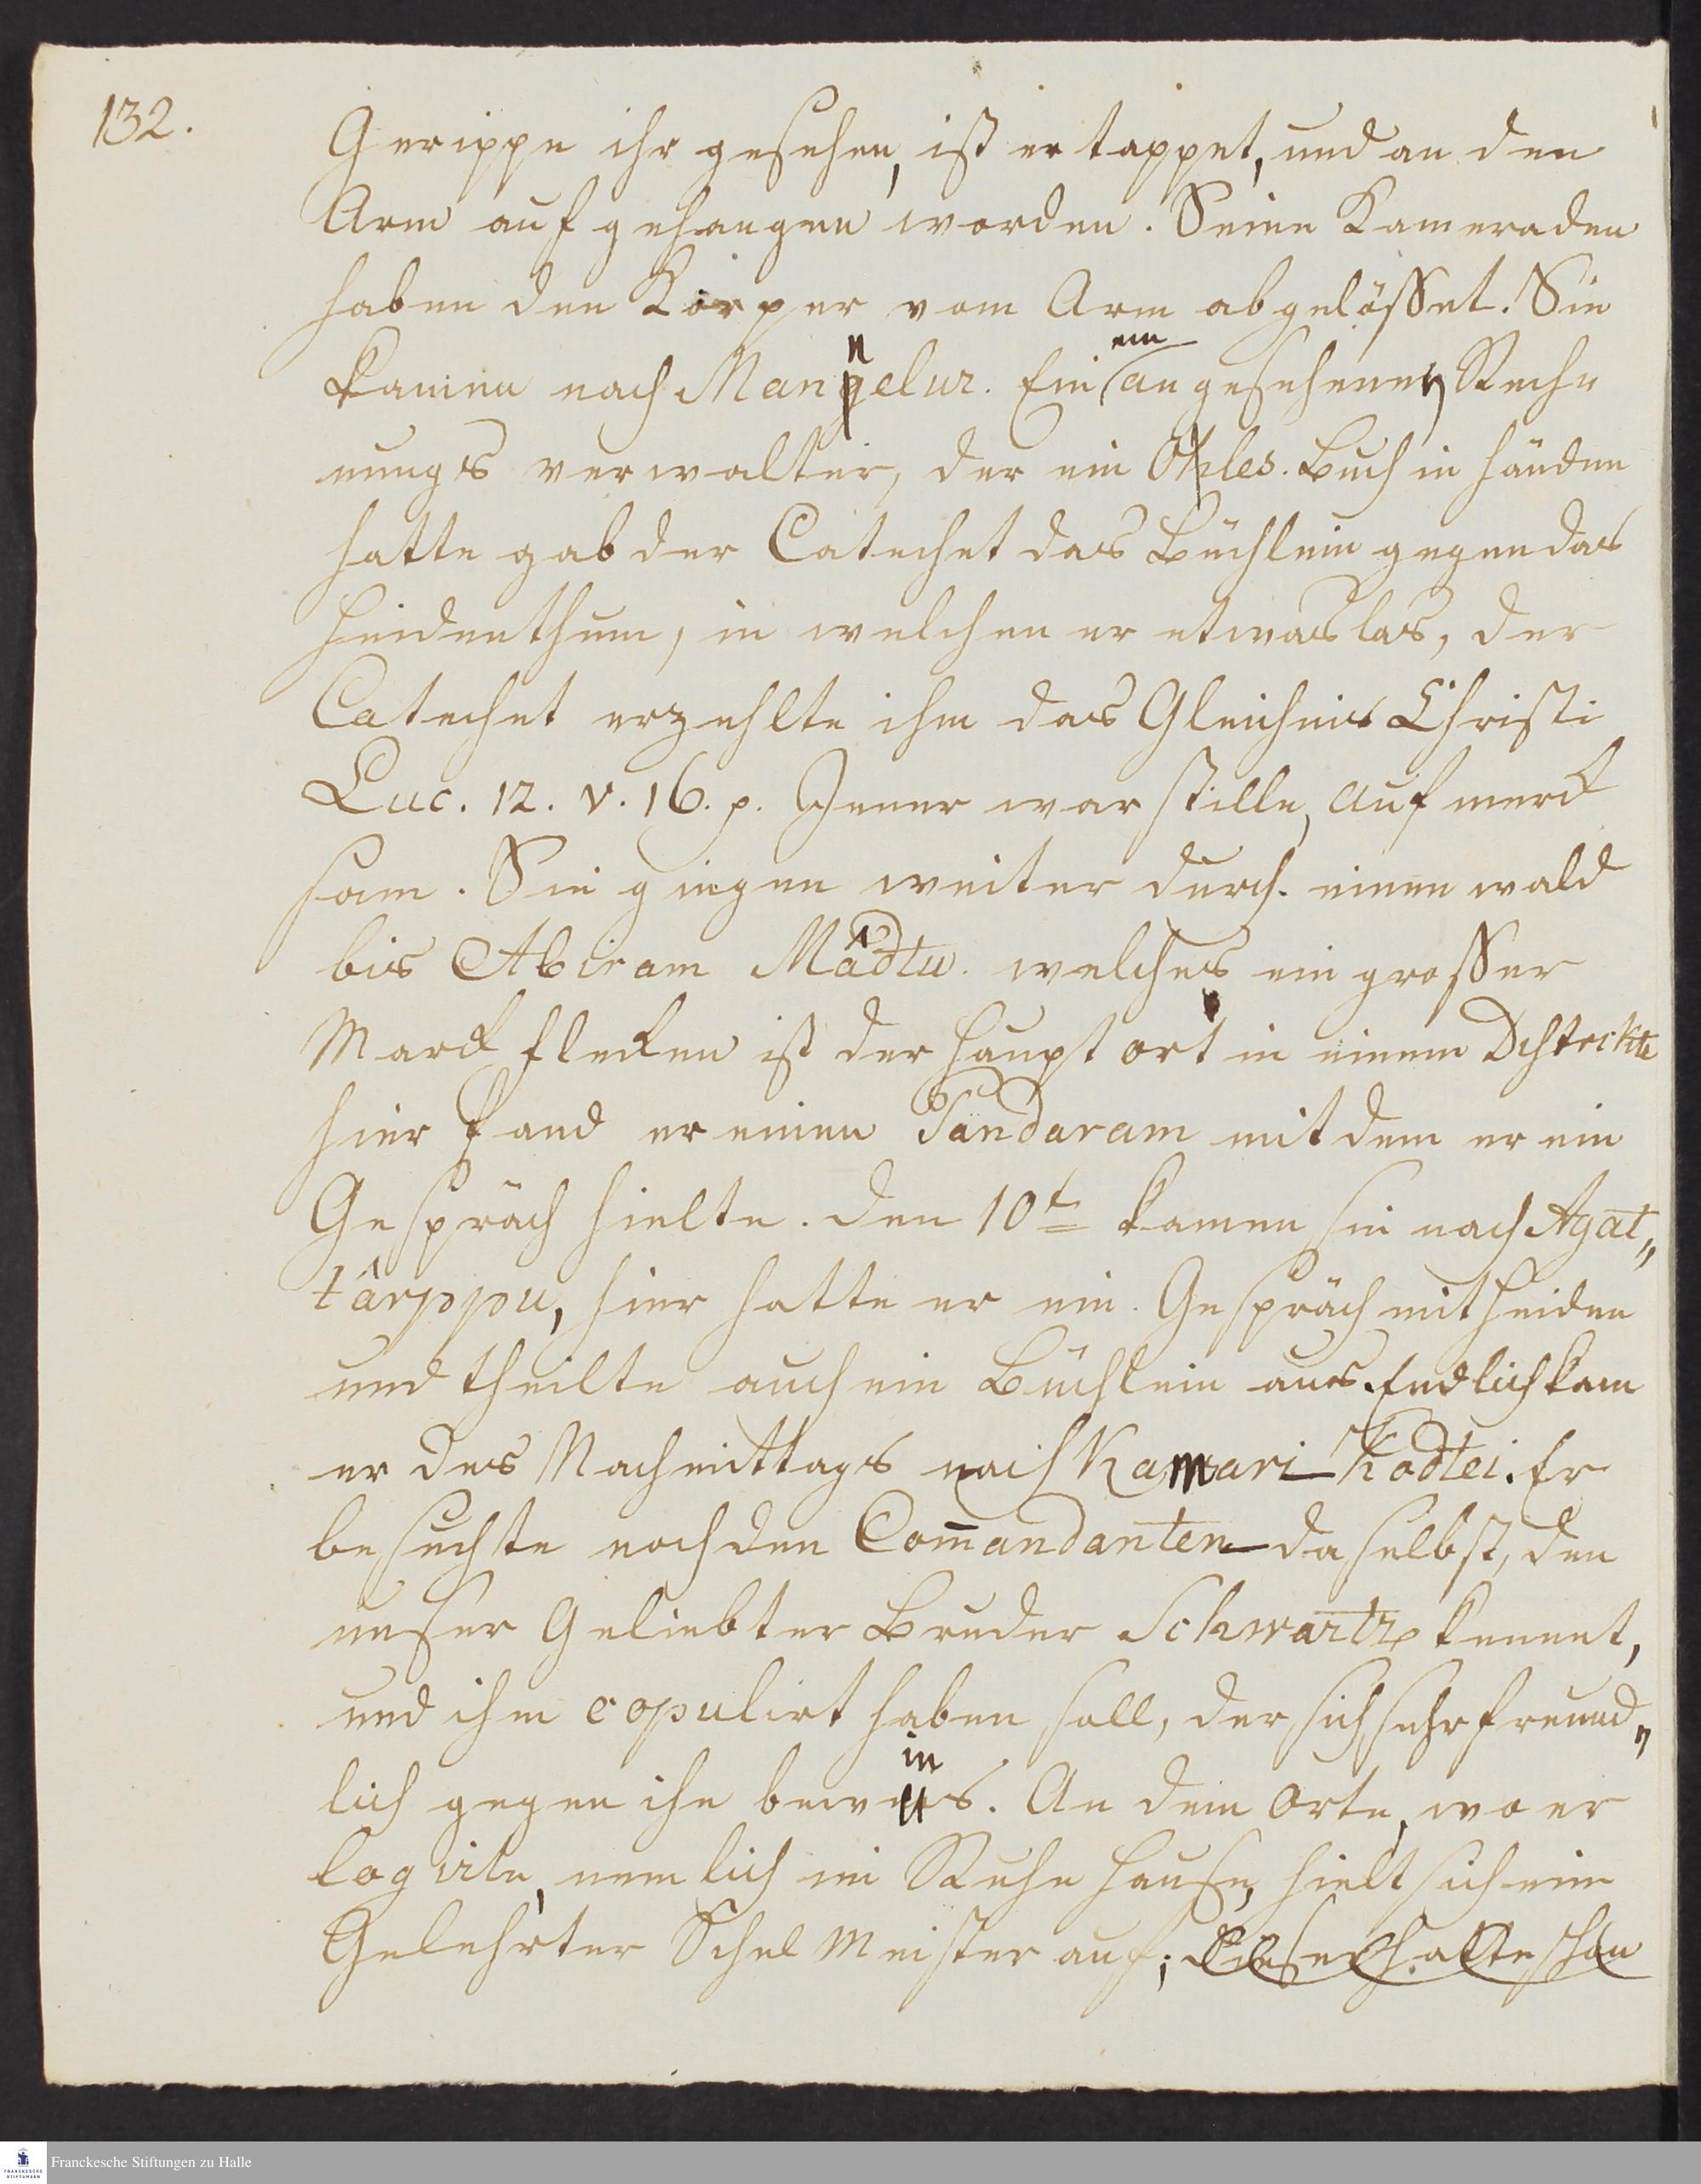 132.
Gerippe ihr gesehen, ist ertappet, und an den
Arm aufgehangen worden. Seine Kameraden
haben den Körper vom Arm abgelösset. Sie
kamen nach Mannelur. Einem angesehenen Rech
nungs verwalter, der ein Oles. Buch in Händen
hatte gab der Catechet das Büchlein gegen das
Heidenthum, in welchen er etwas las, der
Catechet erzehlte ihm das Gleichnis Christi
Luc. 12. v. 16. p. Jener war stille, aufmerck
sam. Sie giengen weiter durch einen wald
bis Abiram Mâdtu. welches ein grosser
Marckflecken ist der Haupt ort in einem Distrikte
hier fand er einen Pandaram mit dem er ein
Gespräch hielte. Den 10t kamen sie nach Agat„
târppu, hier hatte er ein Gespräch mit Heiden
und theilte auch ein Büchlein aus. Endlich kam
er des Nachmittags nach Kamari-Kodtei. Er
besuchte noch den Com̄andanten daselbst, den
unser Geliebter Bruder Schwartz kennet,
und ihm copulirt haben soll, der sich sehr freund„
lich gegen ihn bewies. An dem Orte, wo er
logirte, nemlich im Ruhe Hause, hielt sich ein
Gelehrter Schul Meister auf; dieser hatte schon
Franckesche Stiftungen zu Halle